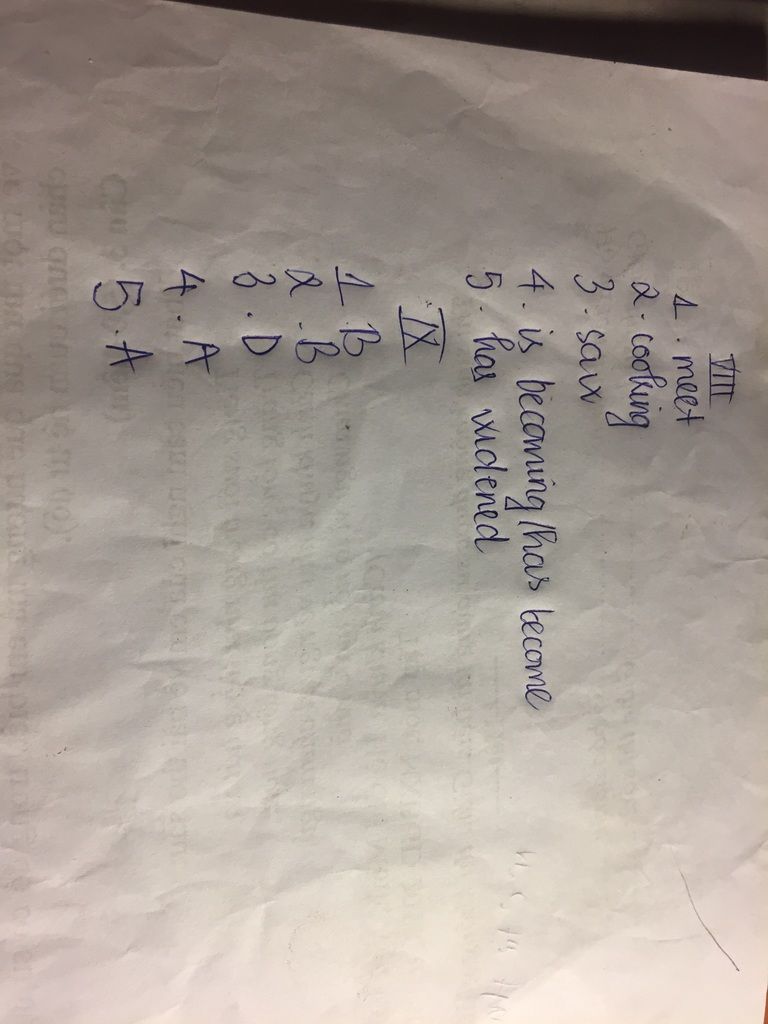 VIII
1. meet
2. cooking
3. saw
4. is becoming/has become
5. has widened
IX
1. B
2. B
3. D
4. A
5. A